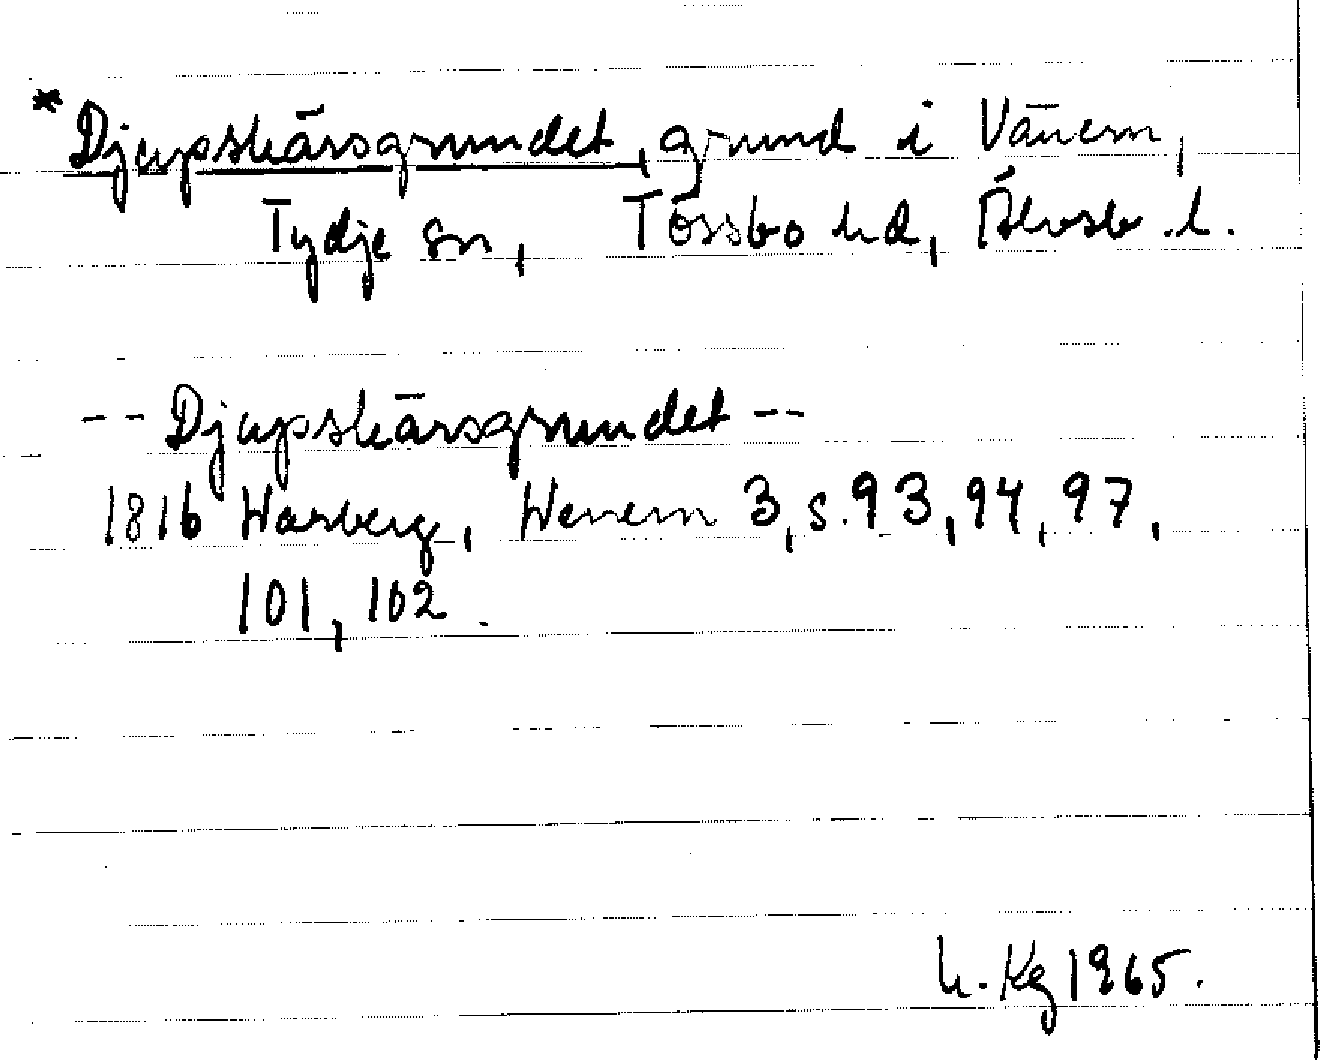 *Djupskärsgrundet, grund i Vänern,
Tydje sn, Tössbo hd, Älvsb. l.
-- Djupskärsgrundet --
1816 Warberg, Wenern 3, s. 93, 94, 97,
101, 102.
h. Kg 1965.